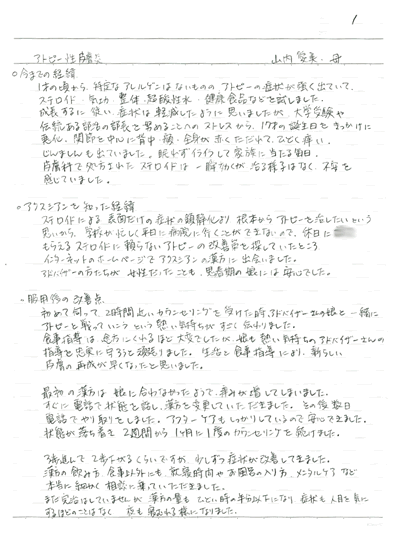 1
アトピー性皮膚炎 山内 愛美・母
○今までの経緯
1才の頃から、特定なアレルゲンはないものの アトピーの症状が強く出ていて、
ステロイド、気功、整体、超酸性水、健康食品などを試しました。
成長するに従い、症状は軽減したように思いましたが、大学受験や
伝統ある部活の部長を務めることへのストレスから、17才の誕生日をきっかけに
悪化、関節を中心に背中・顔・全身が赤くただれて、ひどく痒い
じんましんも出ていました。眠れずイライラして家族に当たる毎日。
皮膚科で処方された ステロイドは一瞬効くが 治る様子はなく、不安を
感じていました。
○アクスシアンを知った経緯
ステロイドによる 表面だけの症状の鎮静化より 根本からアトピーを治したいという
思いから、学校が忙しく平日に病院に行くことができないので、休日に
もらえるステロイドに頼らないアトピーの改善策を探していたところ
インターネットのホームページでアクスシアンの漢方に出会いました。
アドバイザーの方たちが 女性だったことも、思春期の娘には安心でした。
・服用後の改善点
初めて伺って、2時間近いカウンセリングを受けた時、アドバイザーさんの娘と一緒に
アトピーと戦っていこうという熱い気持ちがすごく伝わりました。
食事指導は 途方にくれるほど大変でしたが、娘も熱い気持ちのアドバイザーさんの
指導を忠実に守ろうと頑張りました。生活と食事指導により、新しい
皮膚の再成が早くなったと思いました。
最初の漢方は 娘に合わなかったようで、痒みが増してしまいました。
すぐに電話で状態を話し、漢方を変更していただきました。その後数日
電話でやり取りをしました。アフターケアもしっかりしているので安心できました。
状態が落ち着き 2週間から1ヶ月に1度のカウンセリングを続けました。
3歩進んで2歩下がるくらいですが、少しずつ症状が改善してきました。
漢方の飲み方、食事以外にも、就寝時間やお風呂の入り方、メンタルケアなど
本当に細かく相談に乗っていただきました。
まだ完治はしていませんが 漢方の量も ひどい時の半分以下になり 症状も人目を気に
するほどのことはなく 夜も眠れる様になりました。